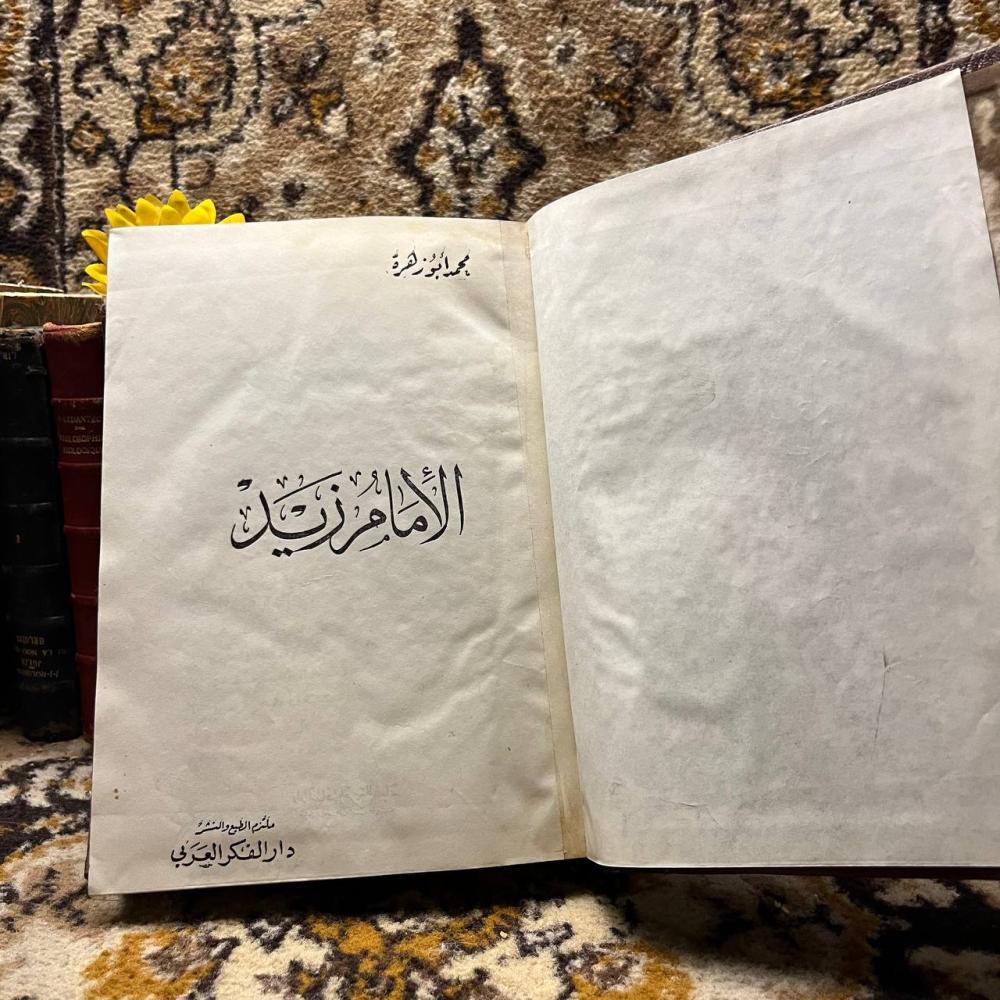 محمد أبو زهرة
الإمام زيد
ملتزم الطبع والنشر
دار الفكر العربي